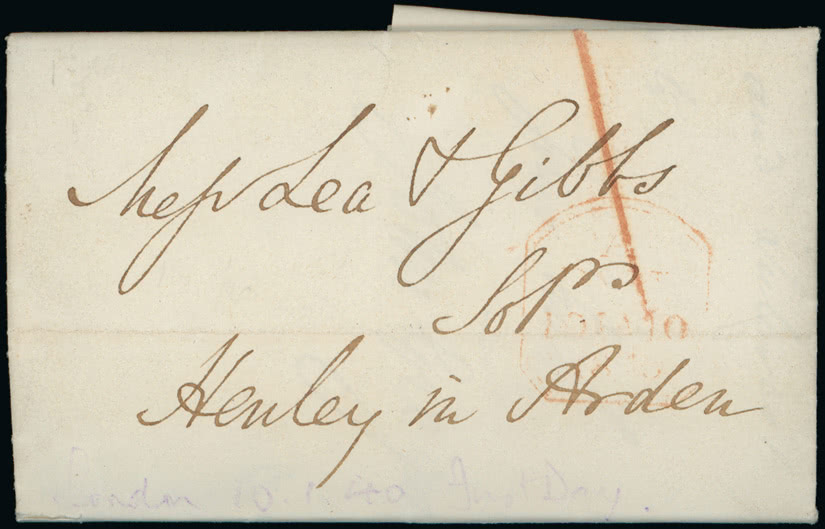 Messrs Lea & Gibbs
Solrs
Henley in Arden
London 10.1.40 First Day.